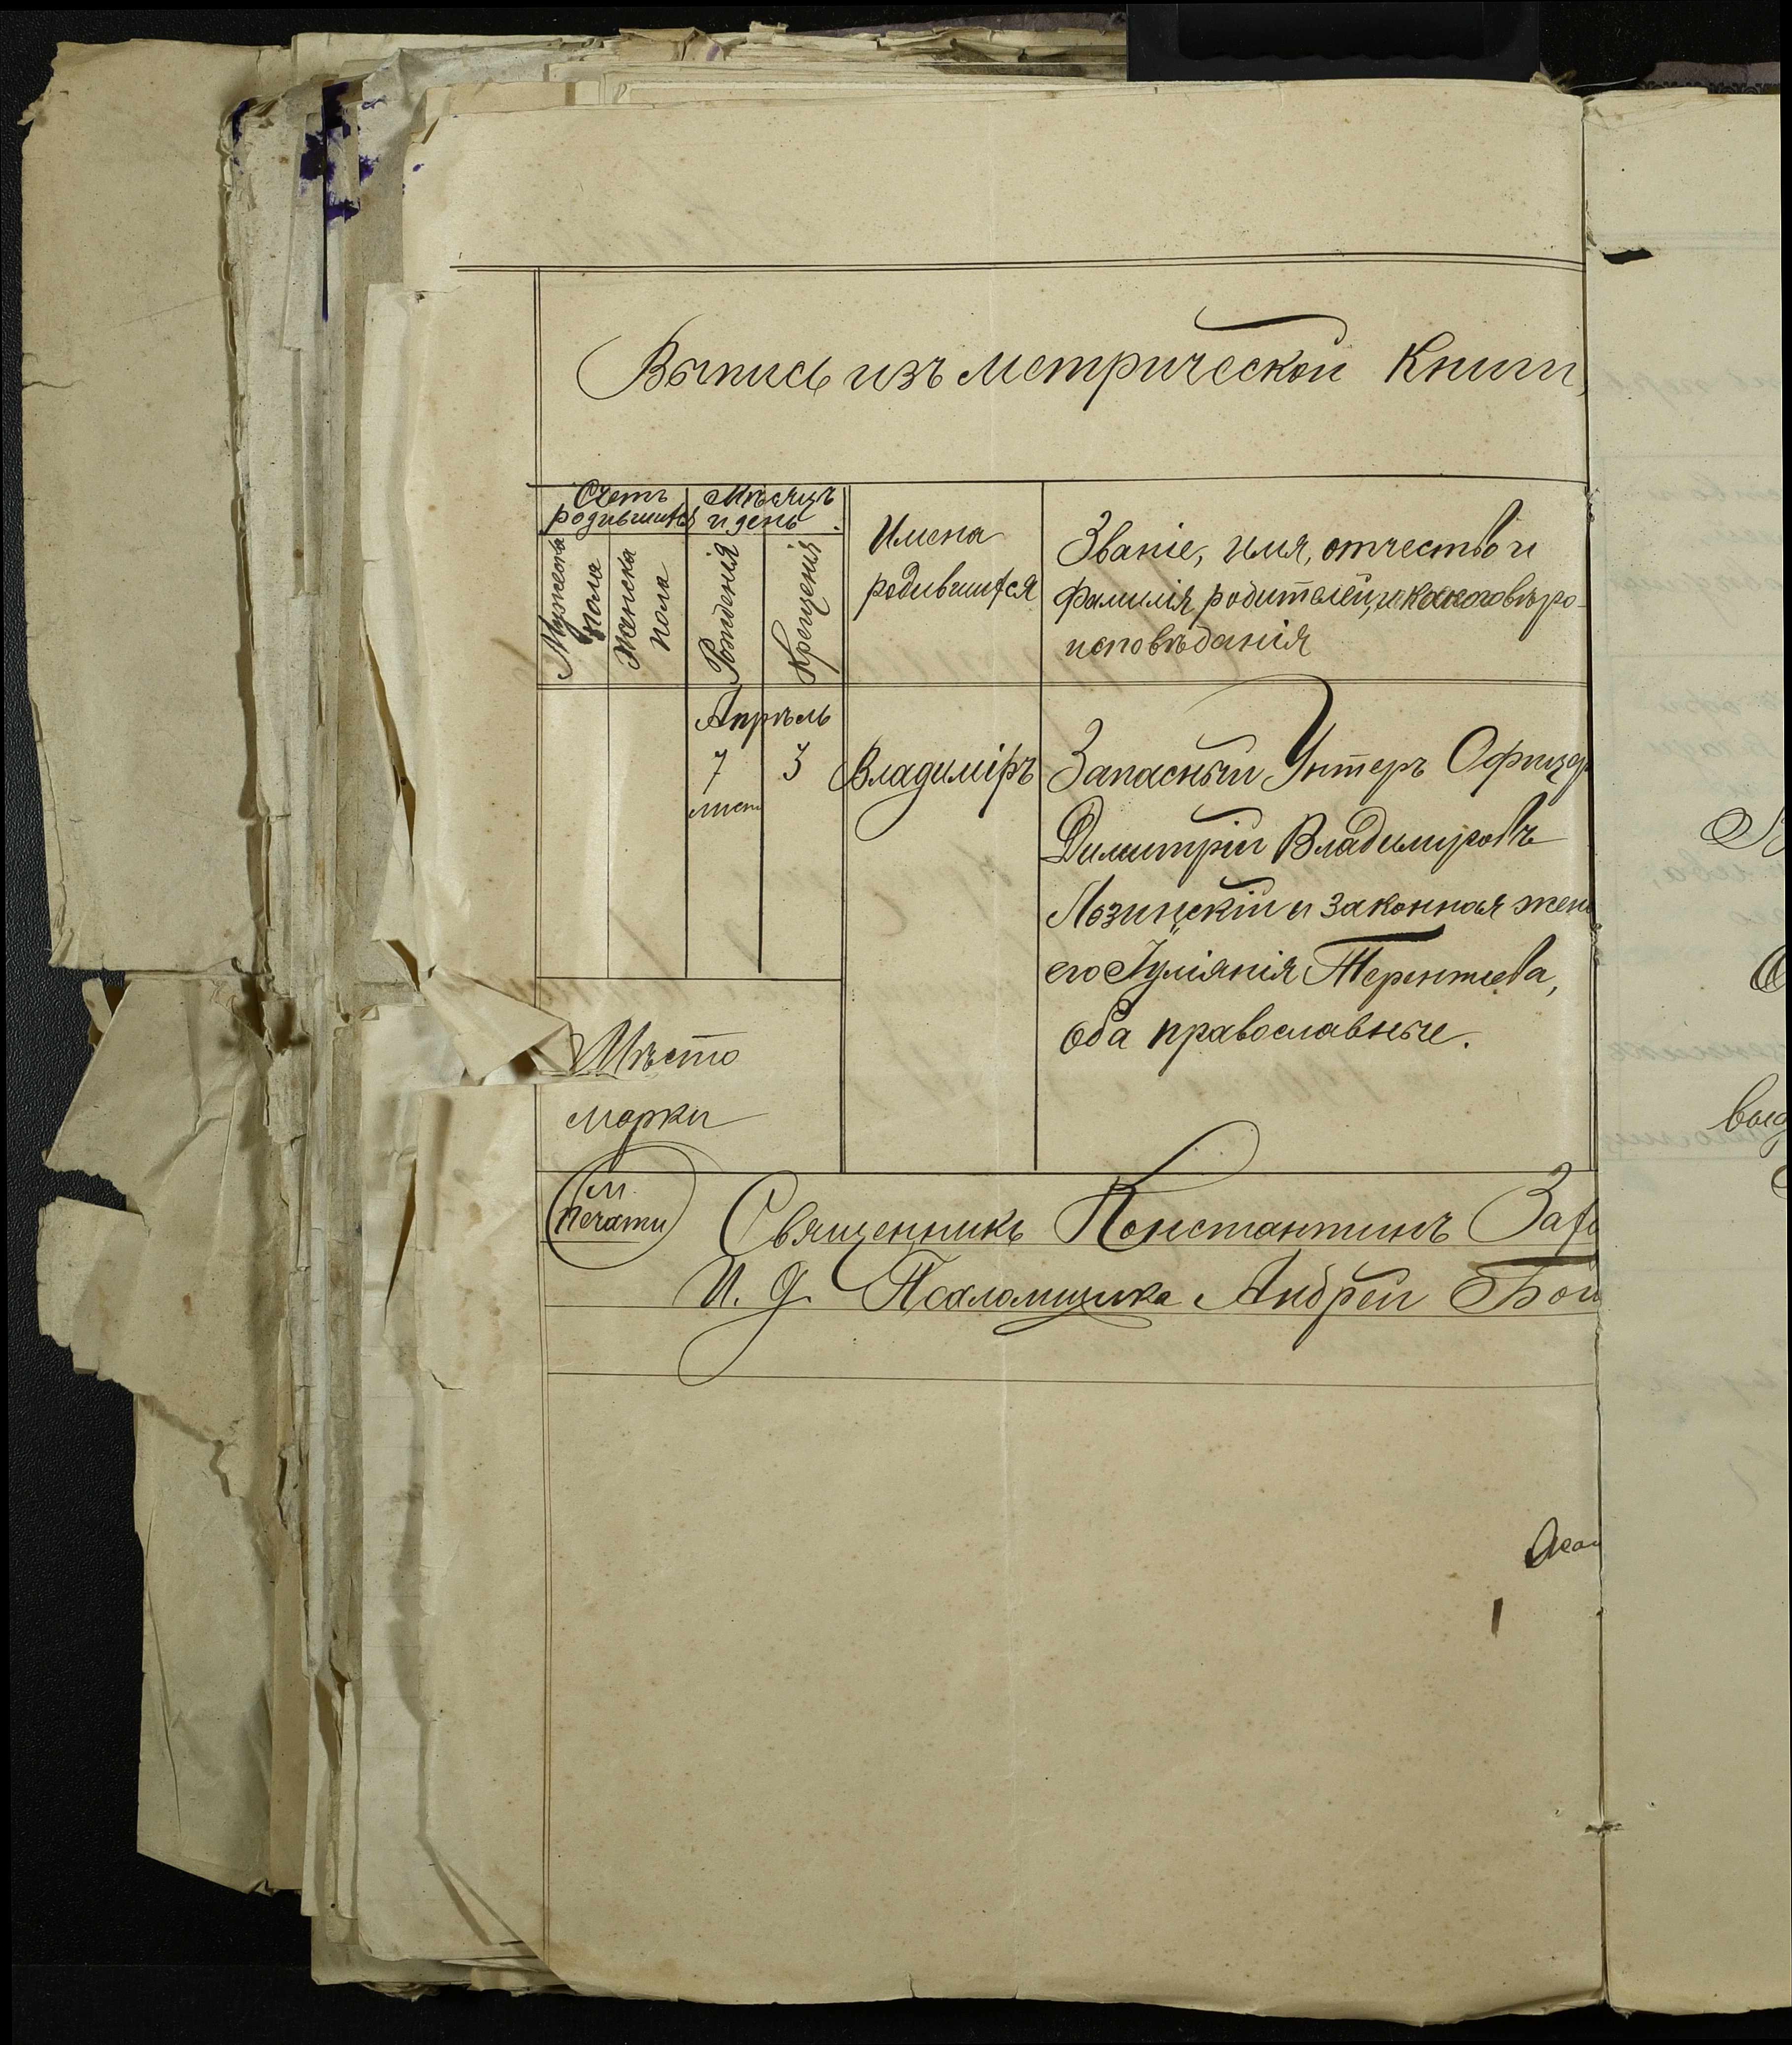 Выпись изъ метрической Книги,
Счетъ родившихся
Мѣсяцъ и день
Мужеска пола
Женска пола
Рожденія
Крещенія
Имена
родившихся
Званіе, имя, отчество и
фамилія родителей, и какого вѣро-
исповѣданія
Апрѣль
7
3
Владиміръ
Запасный Унтеръ Офицер
Димитрій Владимировъ
Лозинскій и законная жена
его Іуліанія Терентьева,
оба православные.
Мѣсто
марки
М.
печати
Священникъ Константинъ
И. д. Псаломщика Андрей